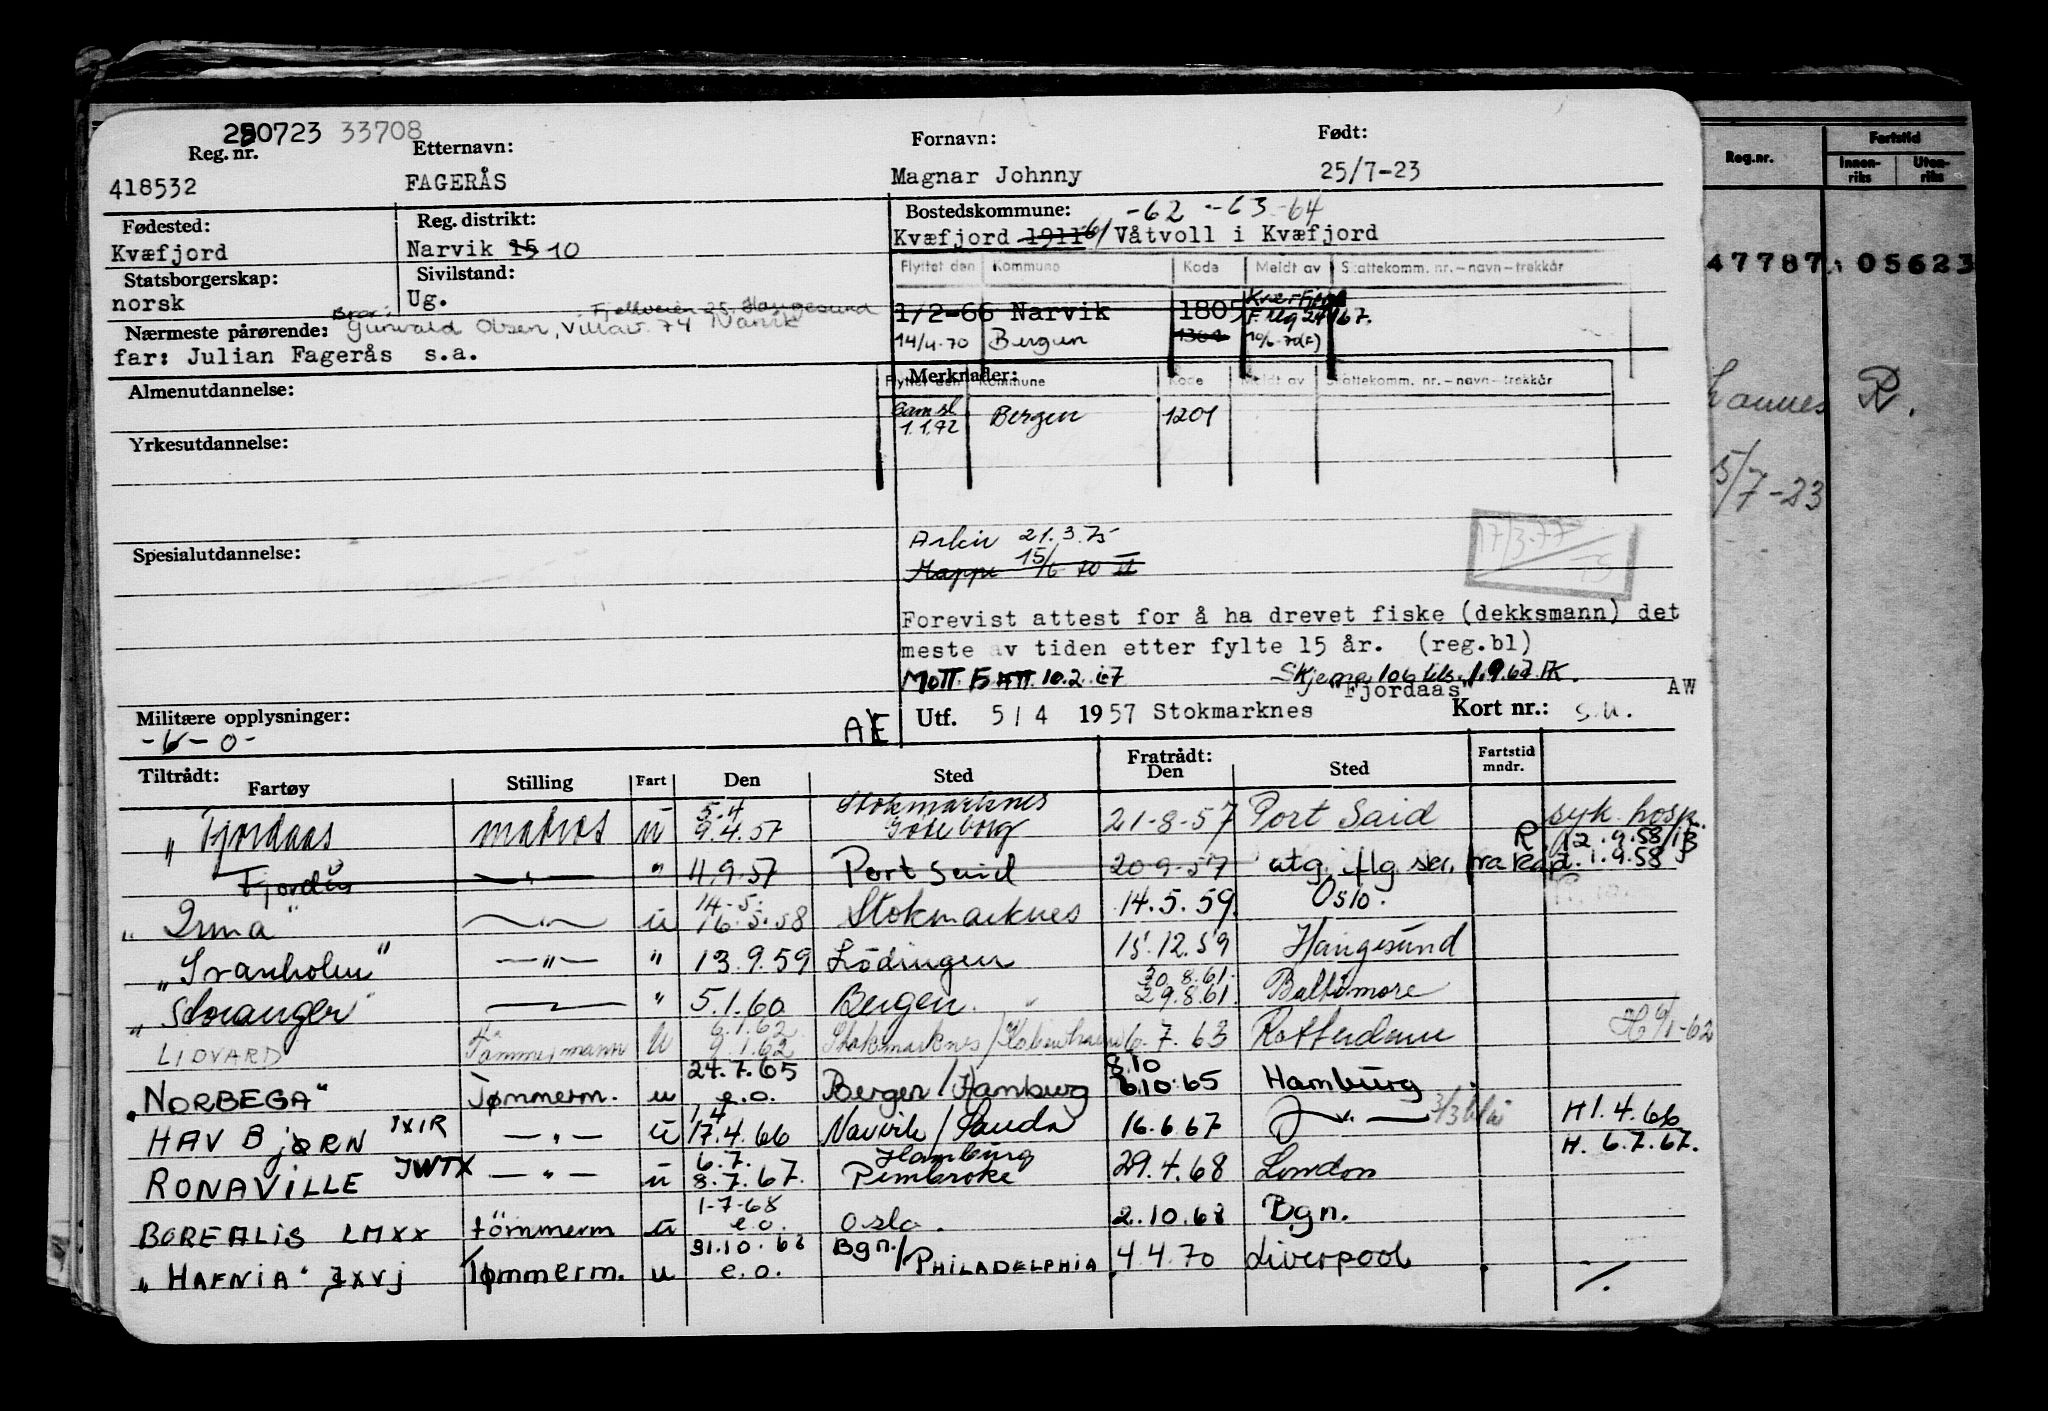 250723 33708
Reg. nr. Etternavn: Fornavn: Født:
418532 FAGERÅS Magnar Johnny 25/7-23
Fødested: Reg. distrikt: Bostedskommune: -62 -63 -64
Kvæfjord Narvik 15 10 Kvæfjord 1911 61/ Våtvoll i Kvæfjord
Statsborgerskap: Sivilstand: Flyttet den Kommune Kode Meldt av Skattekomm. nr.-navn-trekkår
norsk Ug. 1/2-66 Narvik 1805
Bror: Fjellveien 25, Haugesund
Nærmeste pårørende: Gunvald Olsen, Villav. 74 Narvik
14/4-70 Bergen
far: Julian Fagerås s.a.
Almenutdannelse: Merknader:
Flyttet den Kommune Kode Meldt av Skattekomm. nr.-navn-trekkår
Sam sl. 1.1.72 Bergen 1201
Yrkesutdannelse:
Arkiv 21.3.75
17/3-77
Spesialutdannelse: Mappe 15/6 70
Forevist attest for å ha drevet fiske (dekksmann) det
meste av tiden etter fylte 15 år. (reg.bl)
Mott. F ATT. 10.2.67 Skjema 106 1.9.67
"Fjordaas" AW
Militære opplysninger: A/E Utf. 5/4 1957 Stokmarknes Kort nr.: s.n.
-6-0-
Tiltrådt: Fratrådt: Fartstid
Fartøy Stilling Fart Den Sted Den Sted mndr.
"Fjordaas matros u 5.4 9.4.57 Stokmarknes Göteborg 21-8-57 Port Said syk. hosp.
R. 12.9.58/
Fjordås -"- " 11.9.57 Port Said 20-9-57 utg. flg. skr. fra red. 1.9.58
"Irma" -"- u 14-5. 16.5.58 Stokmarknes 14.5.59. Oslo.
"Svanholm" -"- " 13.9.59 Lödingen 15.12.59 Haugesund
"Stavanger" " 5.1.60 Bergen. 30.8.61. 29.8.61. Baltimore
LIDVARD Tømmermann u 6.1.62 9.1.62 Stokmarknes/København 6.7.63 Rotterdam H 9/1-62
"NORBEGA" Tømmerm. u 24.7.65 e.o. Bergen/Hamburg 8.10 6.10.65 Hamburg
HAV BjØRN JXIR -"- u 1/4 17.4.66 Narvik/Sauda 16.6.67 -"- H 1.4.66
RONAVILLE JWTX -"- u 6.7. 8.7.67. Hamburg Pembroke 29.4.68 London H. 6.7.67.
BOREALIS LMXX tömmerm u 1-7-68 e.o. Oslo. 2.10.68 Bgn.
"HAFNIA" JXVJ Tømmerm. u 31.10.68 e.o. Bgn./PHILADELPHIA 4.4.70 Liverpool ./.
Reg.nr. Fartstid
Innen-riks Uten-riks
47787 05623
R.
5/7-23